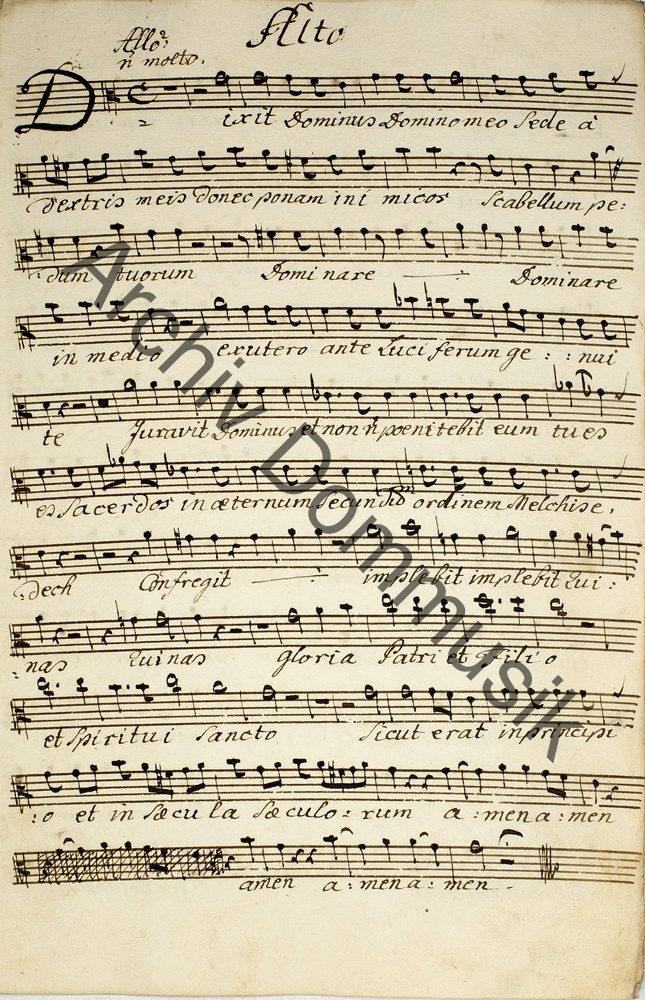 Alto
Allo:
ñ molto.
Dixit Dominus Domino meo Sede à
2
dextris meis donec ponam ini micos Scabellum pe:
:dum tuorum Domi nare Dominare
in medio ex utero ante Luci ferum ge : : nui
te Juravit Dominus et non ñ poenitebit eum tu es
es Sacerdos in æternum Secundũ ordinem Melchise,
:dech Confregit implebit implebit Rui :
:nas Ruinas Gloria Patri et Filio
et Spiritui Sancto Sicut erat in principi
:o et in Sæcu la Sæculo: rum a : men a : men
amen a: men a: men .
Archiv Dommusik